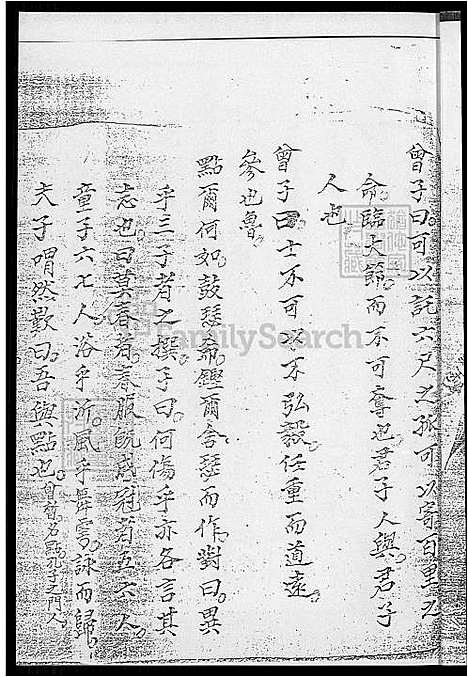 曾子曰可以託六尺之孤可以寄百里之
命臨大節而不可奪也君子人與君子
人也
曾子曰士不可以不弘毅任重而道遠
參也魯
點爾何如鼓瑟希鏗爾舍瑟而作對曰異
乎三子者之撰子曰何傷乎亦各言其
志也曰莫春者春服既成冠者五六人
童子六七人浴乎沂風乎舞雩詠而歸
夫子喟然歎曰吾與點也曾點名孔子之門人
FamilySearch